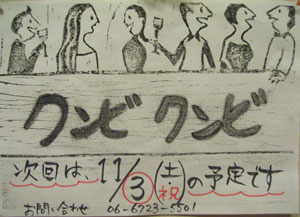 クンビ クンビ
次回は、11/3(土祝)の予定です
お問い合わせ 06-6723-5501